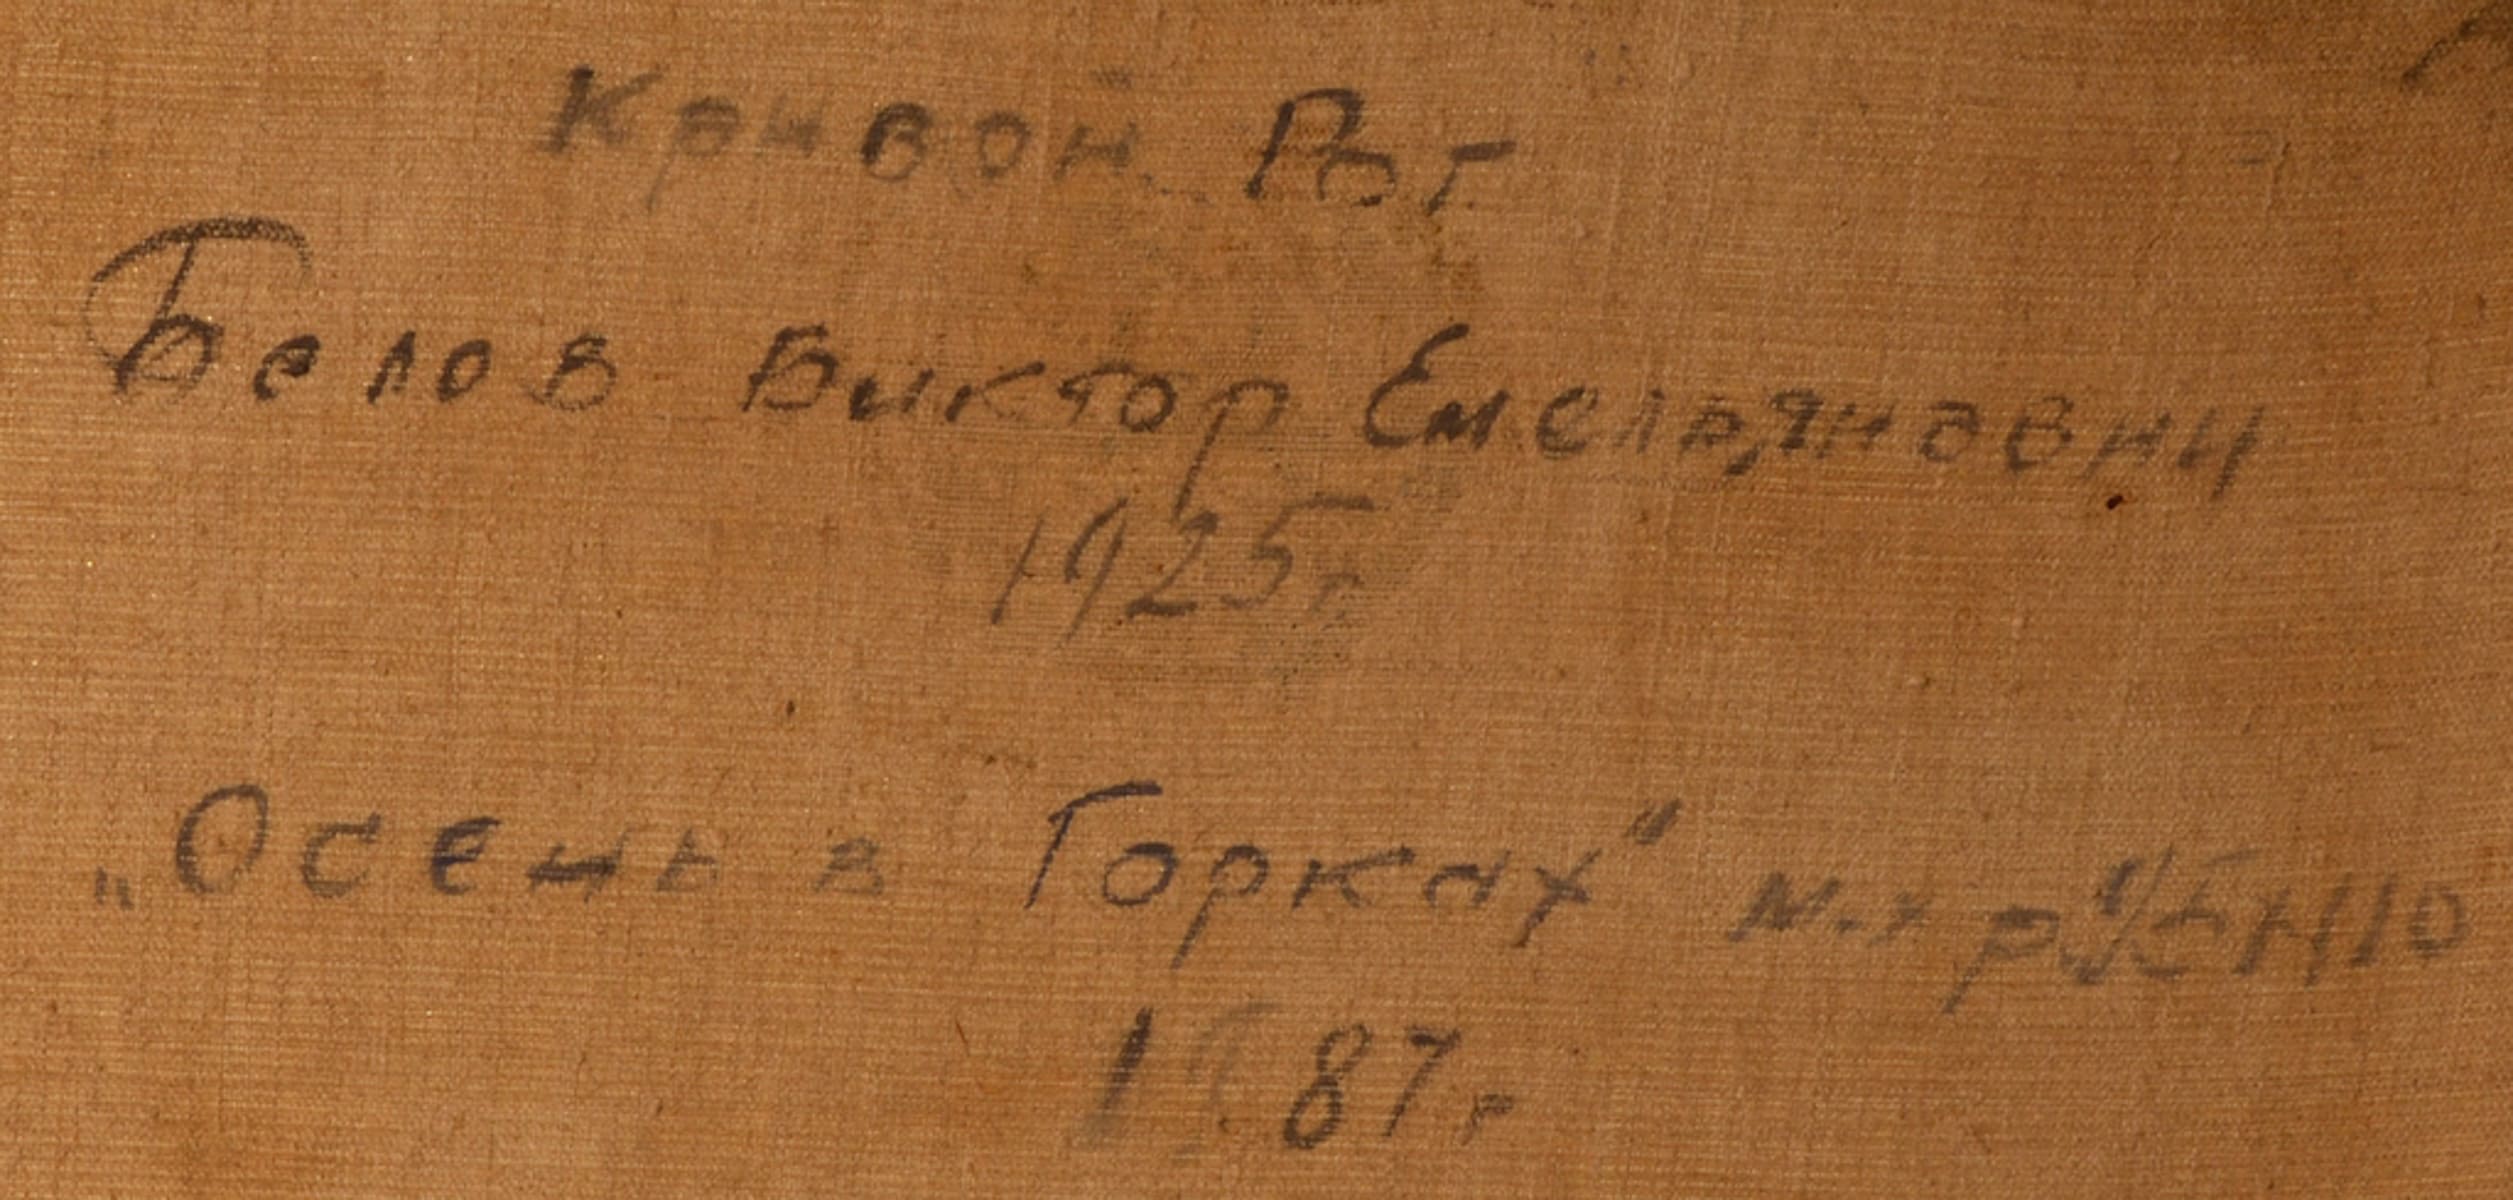 Кривой Рог
Белов Виктор Емельянович
1925г.
„Осень в Горках" м.х
1987г